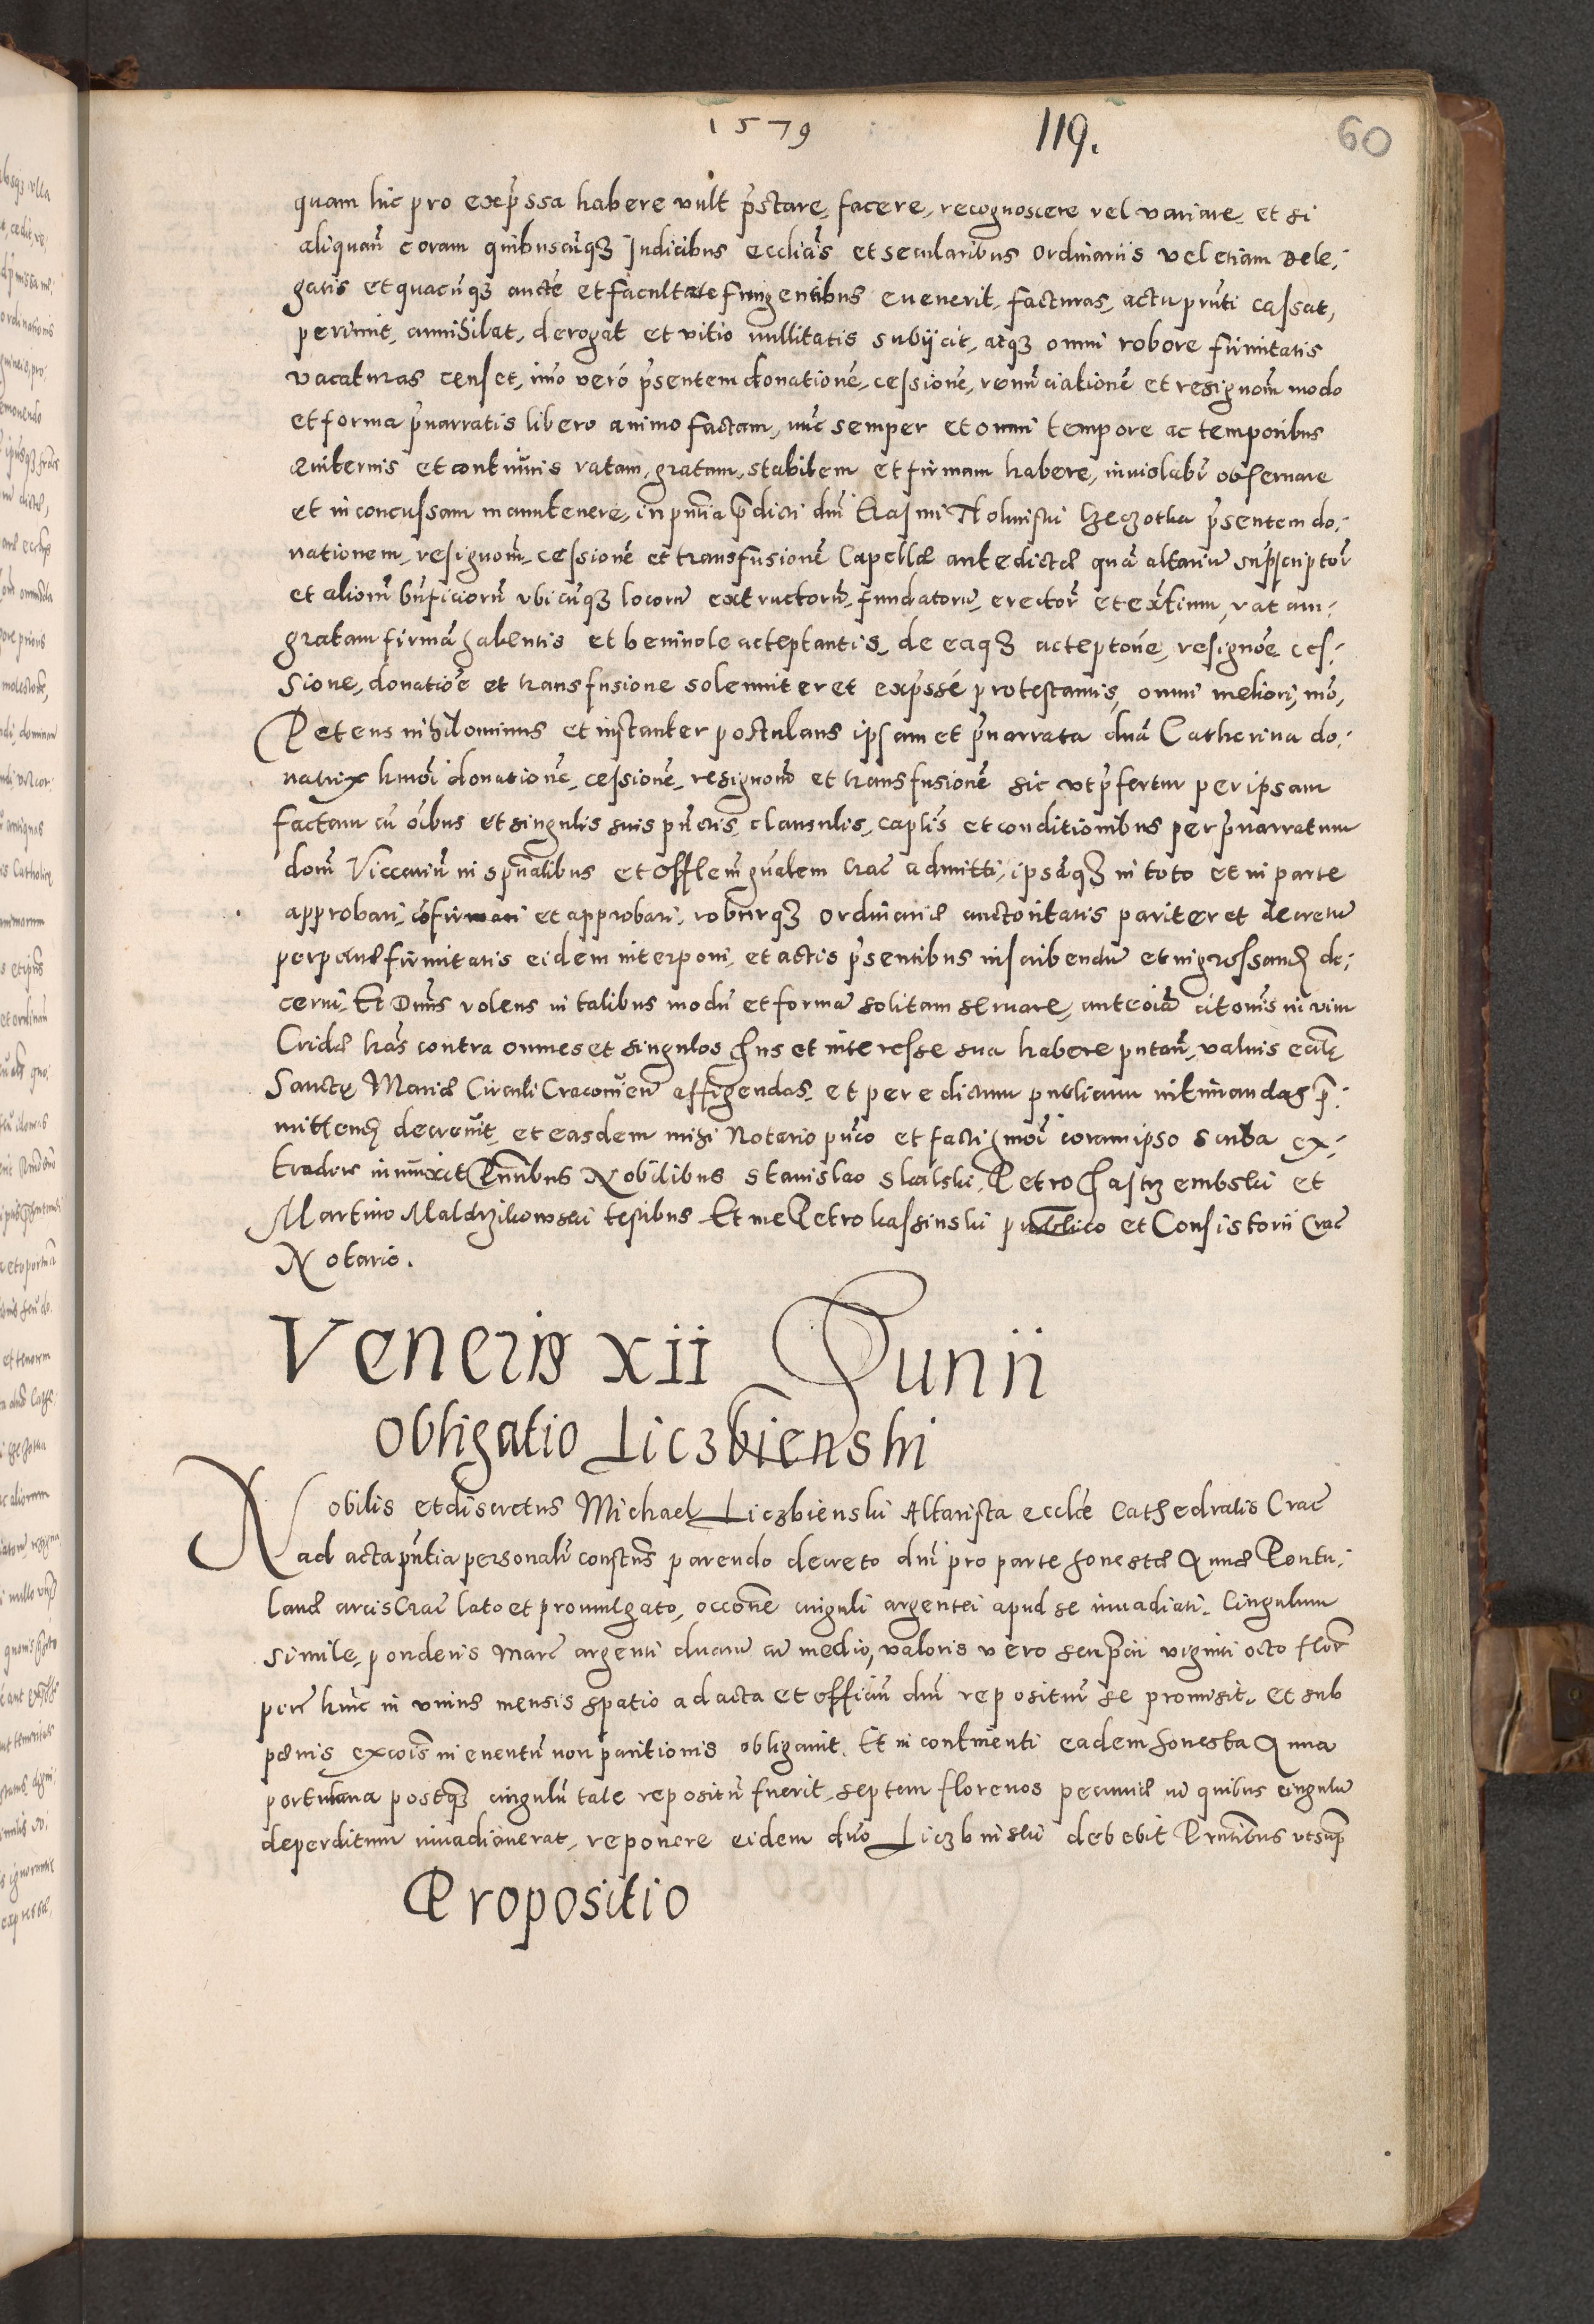 1579 119. 60
quam hic pro exp̃ssa habere vult p̃stare, facere, recognoscere vel variare, et si
aliquañ coram quibuscũqȝ Judicibus ecclicis̃ et secularibus ordinariis vel etiam dele,
gatis et quacũqȝ aucte͂ et facultate fungentibus evenerit, facturas, actu pñti cassat,
perimit, annihilat, derogat et vitio nullitatis subijcit, atqȝ omni robore firmitatis
vacaturas censet, imo vero p̃sentem donationẽ, cessionẽ, renũciationẽ et resignoñ modo
et forma p̃narratis libero animo factam, nũc semper et omni tempore ac temporibus
æuiternis et continuis ratam, gratam, stabilem et firmam habere, inuiolabr̃ obseruare
et inconcussam manutenere, in pñtia p̃dicti dñi Erasmi p̃sentem do,
nationem, resignoñ, cessionẽ et transfusionẽ Capellæ antedictæ quã altarium sup̃scriptor̃
et aliorũ bñficiorũ vbicũqȝ locorum extructorũ, fundatorum, erector̃ et ratam,
gratam firmã habentis et beniuole acceptantis, de eaqȝ acceptoñe, resignoñe ces,
sione, donatioẽ et transfusione solenniter et exp̃sse protestantis, omni meliori, mõ,
Petens nihilominus et instanter postulans ipsamet p̃narrata dñã Catherina do,
natrix hmoĩ donationẽ, cessionẽ, resignoñ et transfusionẽ sic vt p̃fertur per ipsam
factam cũ oĩbus et singulis suis pũctis, clausulis, caplis̃ et conditionibus per p̃narratum
doñ Viccariũ in spũalibus et Offlem̃ gñalem Crac̃ admitti, ipsãqȝ in toto et in parte
approbari, cõfirmari et approbari, roburqȝ ordinariæ auctoritatis pariter et decretum
perpetuæ firmitatis eidem interponi, et actis p̃sentibus inscribendum et ingrossand̃ de,
cerni. Et Dñs volens in talibus modũ et formam solitam seruare, ante oĩa citonẽs in vim
Cridæ has contra omnes et singulos Jus et interesse sua habere putañ, valuis eccliæ
Sanctę Mariæ Circuli Cracouien̄ affigendas, et per edictum publicum intimandas p̃,
mittend̃ decreuit, et easdem mihi Notario pub̃co et facti hmoĩ coram ipso scriba ex,
tradere iniunxit Pñtibus Nobilibus Stanislao Skalski, Petro Jastrzembski et
Martino Maldrzikowski testibus Et me Petro kassinski publico et Consistorii Crac̃
Notario.
Veneris xii Junii
Obligatio Liczbienski
Nobilis et discretus Michael Liczbienski Altarista ecclæ Cathedralis Crac̃
ad acta pñtia personalr̃ constns̃ parendo decreto dñi pro parte honestæ Annæ Portu,
lanæ arcis Crac̃ lato et promulgato, occone͂ cinguli argentei apud se inuadiati, Cingulum
simile, ponderis marc̃ argenti duarum cum medio, valoris vero seu p̃cii viginti octo flor̃
pecũ hinc in vnius mensis spatio ad acta et officiũ dñi repositurũ se promisit, et sub
pænis excois̃ in euentũ non paritionis obligauit. Et in continenti eadem honesta Anna
portulana postqȝ cingulũ tale repositũ fuerit, septem florenos pecuniæ in quibus cingulum
deperditum inuadiauerat, reponere eidem dño Liczbinski debebit Pñtibus vt sup̃
Propositio